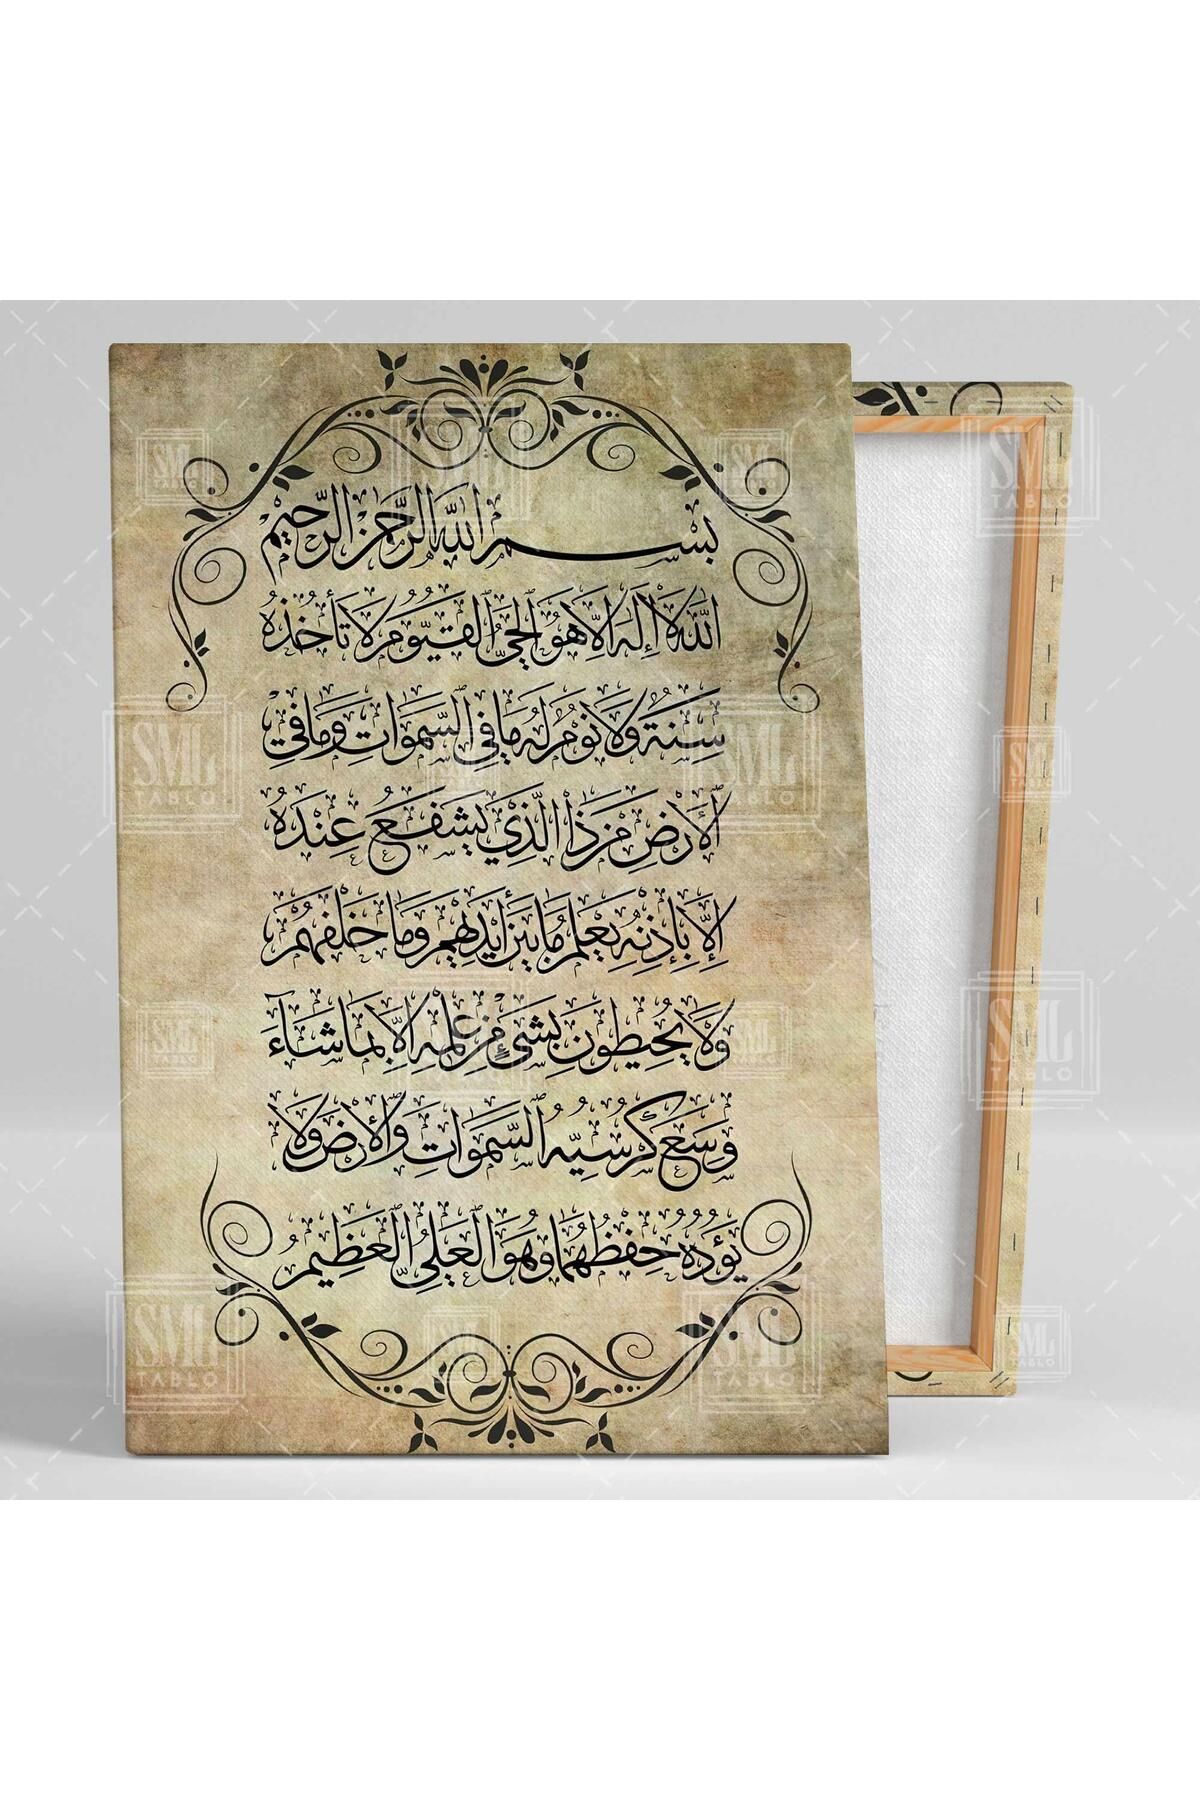 بسم الله الرحمن الرحيم
الله لا إله إلا هو الحي القيوم لا تأخذه
سنة ولا نوم له ما في السموات وما في
الأرض من ذا الذي يشفع عنده
إلا بإذنه يعلم ما بين أيديهم وما خلفهم
ولا يحيطون بشيء من علمه إلا بما شاء
وسع كرسيه السموات والأرض ولا
يؤده حفظهما وهو العلي العظيم
SML
TABLO